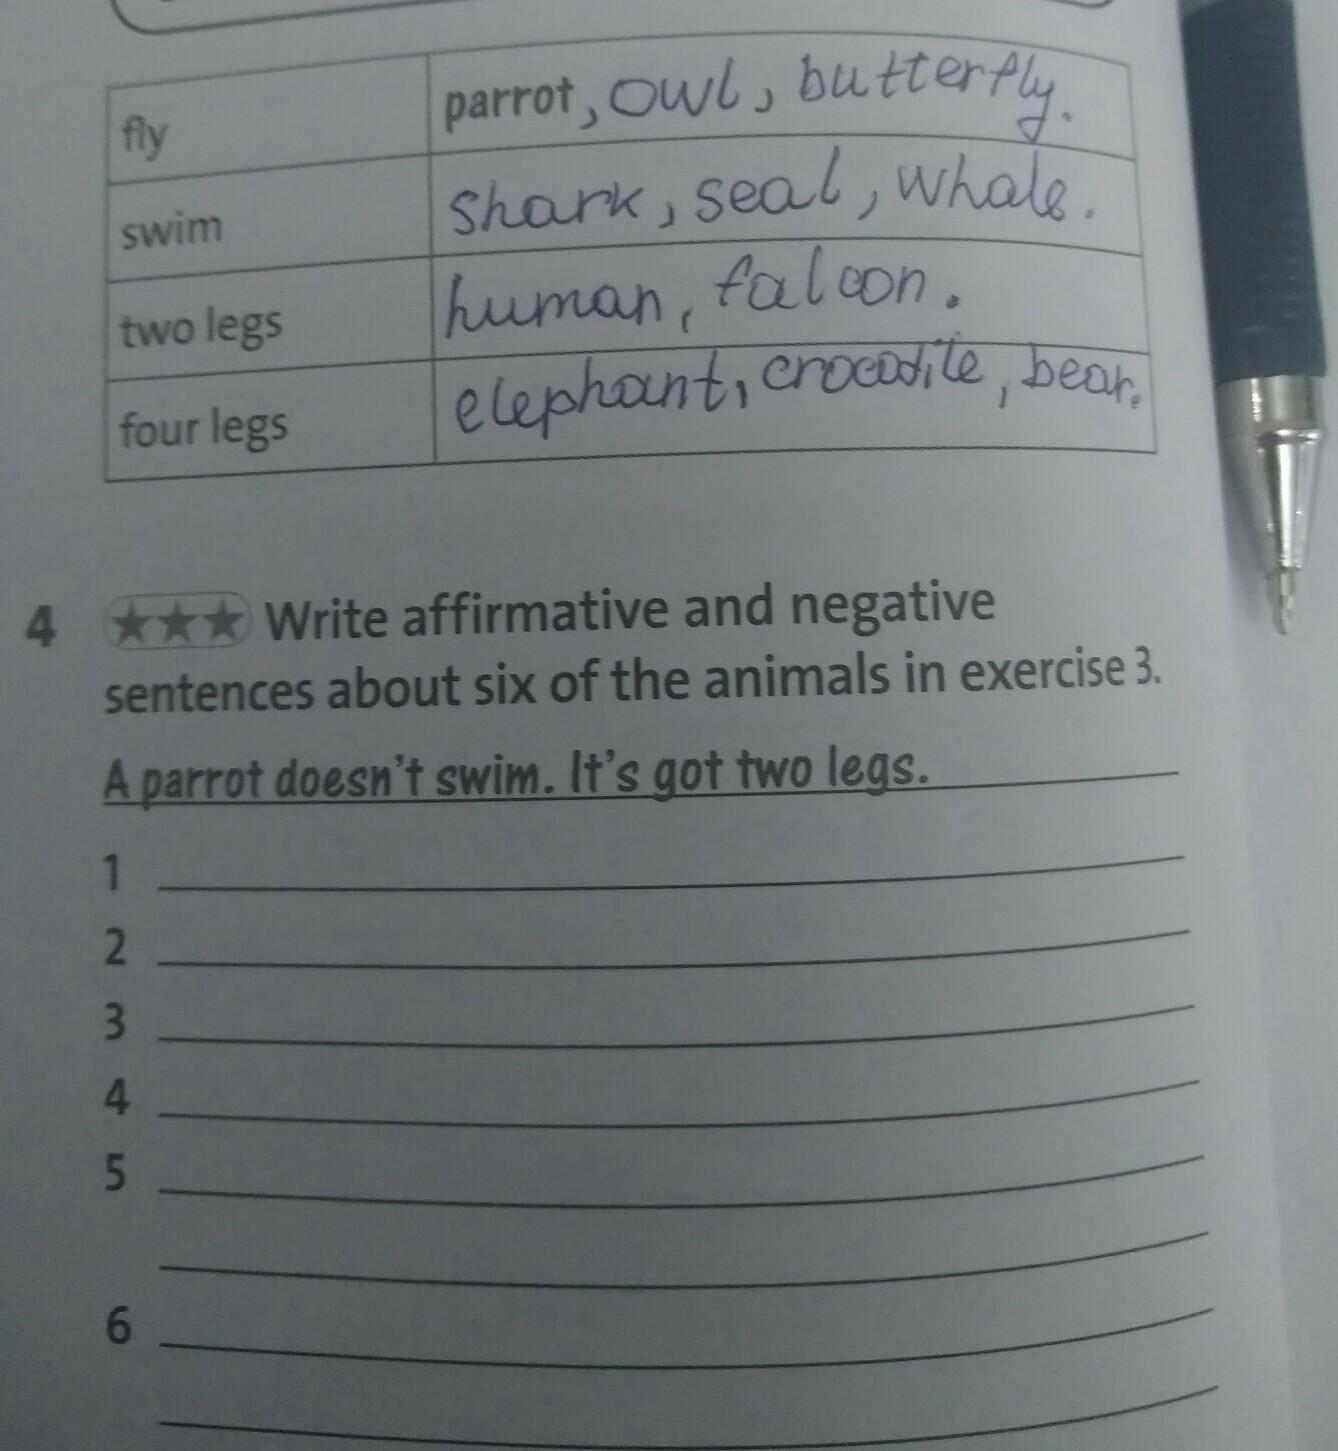 fly parrot, owl, butterfly.
swim shark, seal, whale.
two legs human, falcon.
four legs elephant, crocodile, bear.
4 ★★★ Write affirmative and negative
sentences about six of the animals in exercise 3.
A parrot doesn't swim. It's got two legs.
1
2
3
4
5
6